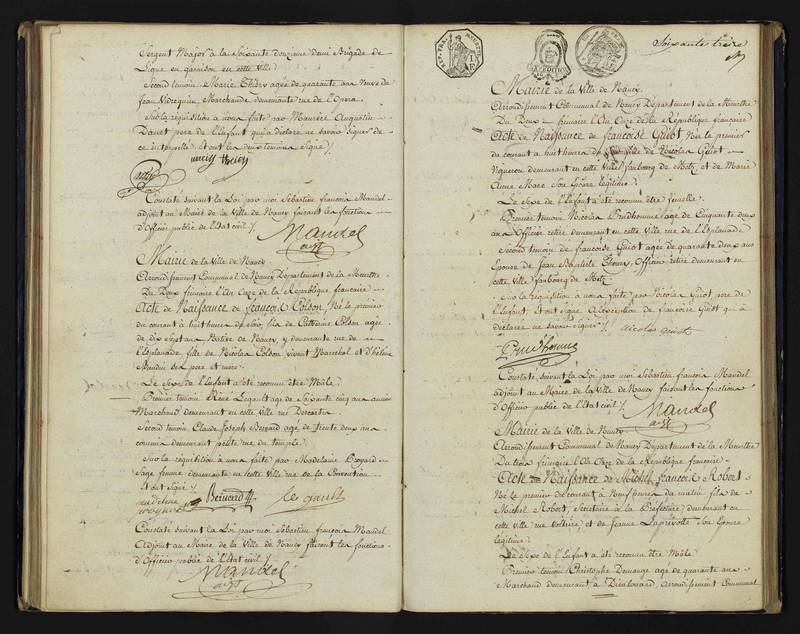 Sergent Major à la Soixante douzième demi Brigade de
Ligne en garnison en cette Ville.
Second temoin Marie Thiéry agée de quarante ans Veuve de
Jean Marchande demeurante rue de l'Opera.
Sur la réquisition à nous faite par Maurice Augustin
pere de l'Enfant qu'a déclaré ne savoir signer de
ce interpellé. Et ont les deux temoins Signé /.
Constaté suivant la Loi par moi Sébastien françois Mandel
adjoint au Maire de la Ville de Nancy faisant les fonctions
d'Officier public de l'Etat civil /.
Mandel
adjt
Mairie de la Ville de Nancy
Arrondissement Communal de Nancy Département de la Meurthe
Du Deux frimaire l'An Onze de la République française
Acte de Naissance de françois Colson, Né le premier
du courant à huit heures du soir, fils de Catherine Colson agée
de dix sept ans Native de Nancy, y demeurante rue de
l'Esplanade, fille de Nicolas Colson vivant Marechal et d'hélène
ses pere et mere.
Le Sexe de l'Enfant a été reconnu être Mâle.
Premier temoin, René Legault agé de Soixante cinq ans ancien
Marchand demeurant en cette Ville rue
Second temoin Claude Joseph Bernard agé de trente deux ans
commis demeurant petite rue du temple.
Sur la réquisition à nous faite par Madelaine Broyard
Sage femme demeurante en cette Ville rue de la Convention
Et ont signé /.
madeleine
Bernard
Legault
Constaté suivant la Loi par moi Sébastien françois Mandel
Adjoint au Maire de la Ville de Nancy faisant les fonctions
d'Officier public de l'Etat civil /.
Mandel
adjt
Soixante treize
Mairie de la Ville de Nancy.
Arrondissement Communal de Nancy Département de la Meurthe
Du Deux frimaire l'An Onze de la République française
Acte de Naissance de françoise Guiot, Née le premier
du courant à huit heures du fille de Nicolas Guiot
Vigneron demeurant en cette Ville faubourg de Metz, et de Marie
Anne Mare Son Epouse légitime.
Le Sexe de l'Enfant a été reconnu être femelle.
Premier temoin Nicolas Prudhomme agé de Cinquante deux
ans Officier retiré demeurant en cette Ville rue de l'Esplanade
Second temoin de françoise Guiot agée de quarante deux ans
Epouse de Jean Baptiste Officier retiré demeurant en
cette Ville faubourg de Metz
Sur la réquisition à nous faite par Nicolas Guiot pere de
l'Enfant, Et ont signé à l'exception de françoise Guiot qui a
déclaré ne savoir signer /. nicolas guiot
Prud'homme
Constaté, suivant la Loi par moi Sébastien françois Mandel
adjoint au Maire de la Ville de Nancy faisant les fonctions
d'Officier public de l'Etat civil /.
Mandel
adjt
Mairie de la Ville de Nancy
Arrondissement Communal de Nancy Département de la Meurthe
Du trois frimaire l'An Onze de la République française
Acte de Naissance de Michel françois Robert
Né le premier du courant à Neuf heures du matin fils de
Michel Robert, Secrétaire à la Préfecture demeurant en
cette Ville rue Voltaire, et de Jeanne Laprévotte Son Epouse
légitime.
Le Sexe de l'Enfant a été reconnu être Mâle
Premier temoin Christophe Demange agé de quarante ans
Marchand demeurant à Dieulouard Arrondissement Communal